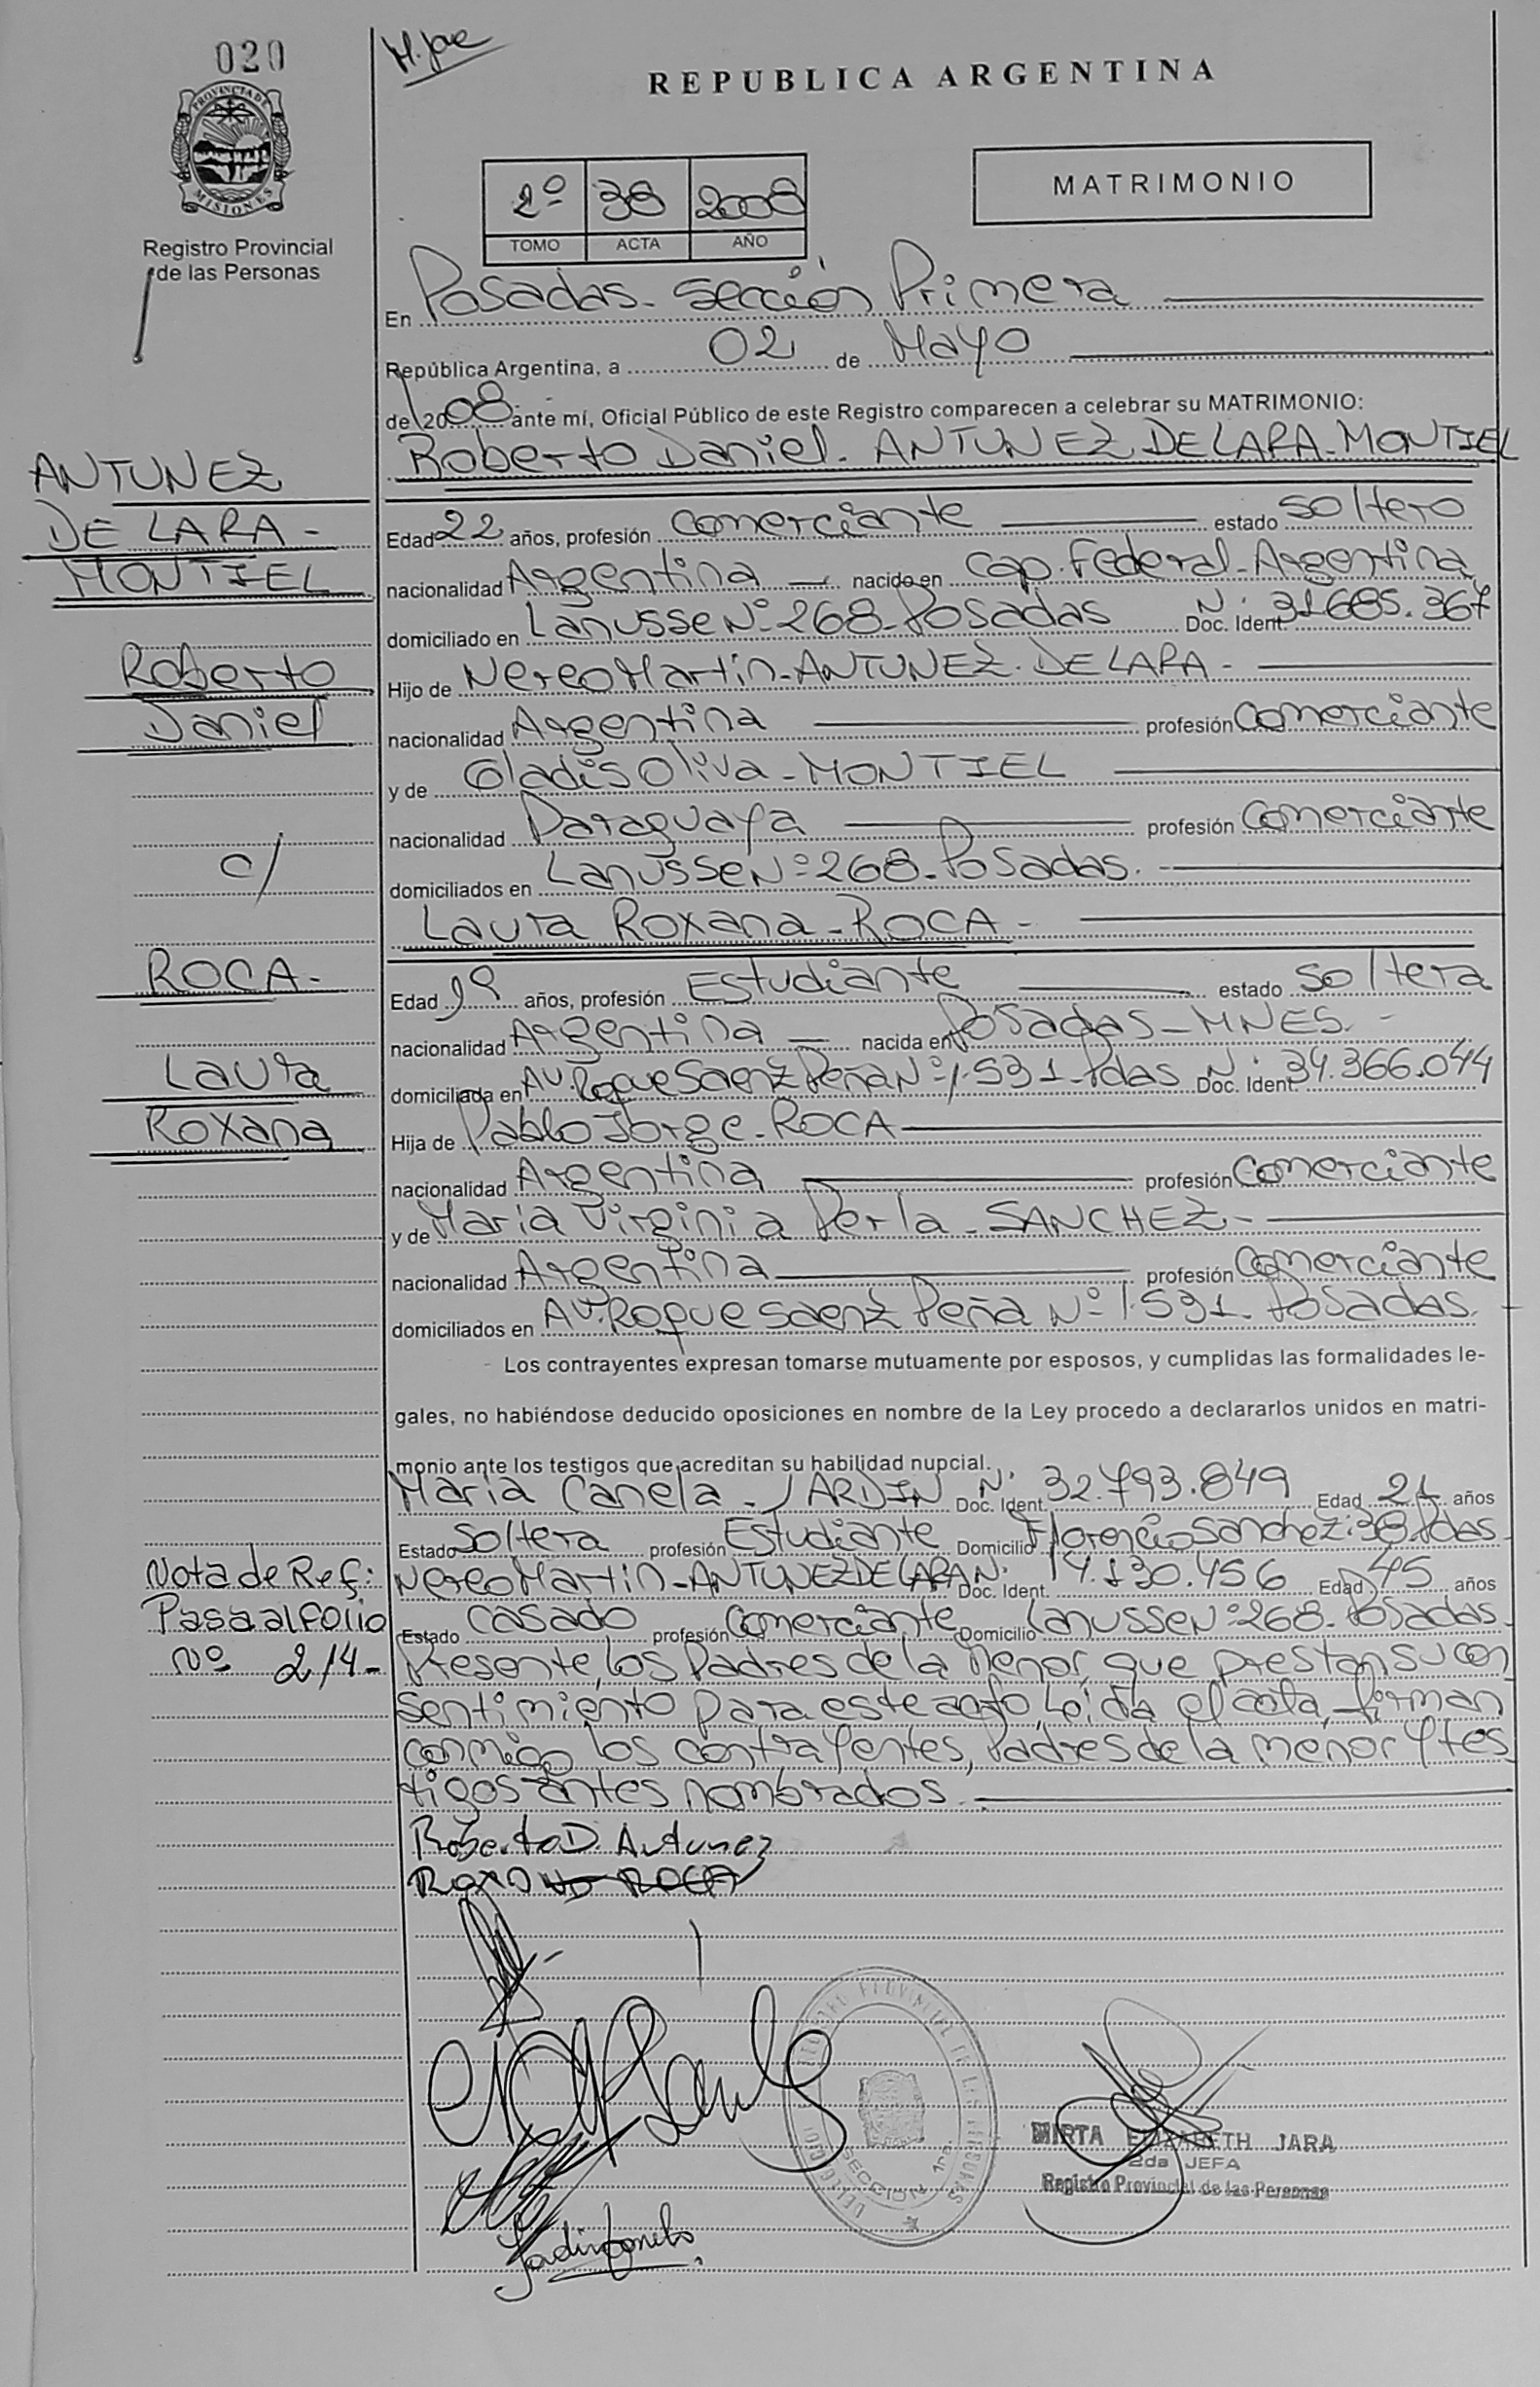 020
H. Jpe
REPUBLICA ARGENTINA
PROVINCIA DE
MISIONES
Registro Provincial
de las Personas
2º 38 2008
TOMO ACTA AÑO
MATRIMONIO
En Posadas - Sección Primera
República Argentina, a 02 de Mayo
de 2008 ante mí, Oficial Público de este Registro comparecen a celebrar su MATRIMONIO:
Roberto Daniel. ANTUNEZ DE LARA - MONTIEL
ANTUNEZ
DE LARA -
MONTIEL
Roberto
Daniel
c/
ROCA-
Laura
Roxana
Edad 22 años, profesión Comerciante estado Soltero
nacionalidad Argentina nacido en Cap. Federal - Argentina
domiciliado en Lanusse Nº 268 - Posadas Doc. Ident. N: 31685.367
Hijo de Nereo Martin - ANTUNEZ. DE LARA -
nacionalidad Argentina profesión Comerciante
y de Gladis Oliva - MONTIEL
nacionalidad Paraguaya profesión Comerciante
domiciliados en Lanusse Nº 268 - Posadas.
Laura Roxana - ROCA -
Edad 19 años, profesión Estudiante estado Soltera
nacionalidad Argentina nacida en Posadas - MNES. -
domiciliada en AV. Roque Saenz Peña Nº 1.531 - Pdas Doc. Ident. N: 34.366.044
Hija de Pablo Jorge - ROCA
nacionalidad Argentina profesión Comerciante
y de Maria Virginia Perla - SANCHEZ -
nacionalidad Argentina profesión Comerciante
domiciliados en AV. Roque Saenz Peña Nº 1.531 - Posadas.
Los contrayentes expresan tomarse mutuamente por esposos, y cumplidas las formalidades le-
gales, no habiéndose deducido oposiciones en nombre de la Ley procedo a declararlos unidos en matri-
monio ante los testigos que acreditan su habilidad nupcial.
Maria Canela - JARDIN Doc. Ident. N: 32.793.849 Edad 21 años
Estado Soltera profesión Estudiante Domicilio Florencio Sanchez: 38 Pdas
Nereo Martin - ANTUNEZ DE LARA Doc. Ident. N: 14.130.456 Edad 45 años
Estado Casado profesión Comerciante Domicilio Lanusse Nº 268 - Posadas
Nota de Ref:
Pasa al folio
Nº 214 -
Presente, los Padres de la Menor, que prestan su con
sentimiento para este acto, Leída el acta, firman
conmigo los contrayentes, Padres de la menor y tes
tigos antes nombrados.
Roberto D. Antunez
Roxana ROCA
Jardin Canela
SECCION 1ra.
MIRTA ELIZABETH JARA
2da JEFA
Registro Provincial de las Personas